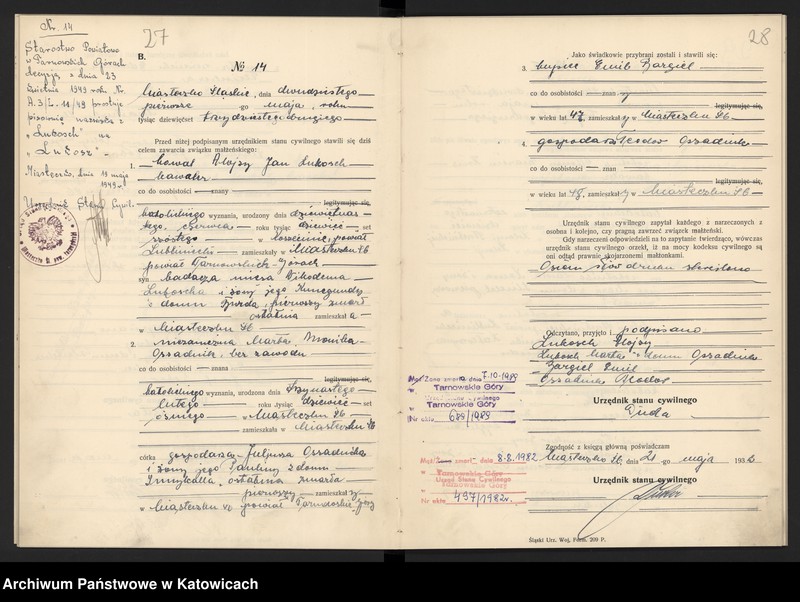 Nr. 14
Starostwo Powiatowe
w Tarnowskich Górach
decyzją z dnia 23
kwietnia 1949 rok Nr.
A.3/L. 11/49 prostuje
pisownię nazwiska z
"Lubosch" na
"Lubosz".
Miasteczko, dnia 19 maja
1949 r.
Urzędnik Stanu Cywil.
27
B.
№ 14
Miasteczko Śląskie, dnia dwudziestego
pierwszego -go maja, roku
tysiąc dziewięćset trzydziestego drugiego
Przed niżej podpisanym urzędnikiem stanu cywilnego stawili się dziś
celem zawarcia związku małżeńskiego:
1. kowal Alojzy Jan Lubosch
kawaler
co do osobistości — znany
legitymując się,
katolickiego wyznania, urodzony dnia dziewiętnas-
tego czerwca roku tysiąc dziewięć- set
szóstego w powiat
Lubliniecki zamieszkały w Miasteczku Śl.
powiat Tarnowskich-Górach
syn badacza mięsa Nikodema
Luboscha i żony jego Kunegundy
z domu pierwszy zmarł
ostatnia zamieszkała
w Miasteczku Śl.
2. niezamężna Marta Monika
Ossadnik, bez zawodu
co do osobistości — znana
legitymując się,
katolickiego wyznania, urodzona dnia trzynastego
lutego roku tysiąc dziewięć- set
ósmego w Miasteczku Śl.
zamieszkała w Miasteczku Śl.
córka gospodarza Juljusza Ossadnika
i żony jego Pauliny z domu
ostatnia zmarła
pierwszy zamieszkały
w Miasteczku Śl. powiat Tarnowskie Góry
28
Jako świadkowie przybrani zostali i stawili się:
3. Emil Bargiel
co do osobistości — zn y
legitymując się,
w wieku lat 47, zamieszkały w Miasteczku Śl.
4. gospodarz Teodor Ossadnik
co do osobistości — znan
legitymując się,
w wieku lat 48, zamieszkały w Miasteczku Śl.
Urzędnik stanu cywilnego zapytał każdego z narzeczonych z
osobna i kolejno, czy pragną zawrzeć związek małżeński.
Gdy narzeczeni odpowiedzieli na to zapytanie twierdząco, wówczas
urzędnik stanu cywilnego orzekł, iż na mocy kodeksu cywilnego są
oni odtąd prawnie skojarzonemi małżonkami.
Osiem słów druku skreślono
Odczytano, przyjęto i podpisano
Lubosch Alojzy
Lubosch Marta z domu Ossadnik
Bargiel Emil
Ossadnik Teodor
Urzędnik stanu cywilnego
Duda
Mąż/Żona zmarła dnia 7.10.1989
w Tarnowskie Góry
Urząd Stanu Cywilnego
w Tarnowskie Góry
Nr aktu 689/1989
Zgodność z księgą główną poświadczam
Miasteczko Śl., dnia 21 -go maja 1932
Urzędnik stanu cywilnego
Mąż/ zmarł dnia 8.8.1982
w Tarnowskie Góry
Urząd Stanu Cywilnego
w Tarnowskie Góry
Nr aktu 497/1982r.
Śląski Urz. Woj. Form. 209 P.
Archiwum Państwowe w Katowicach